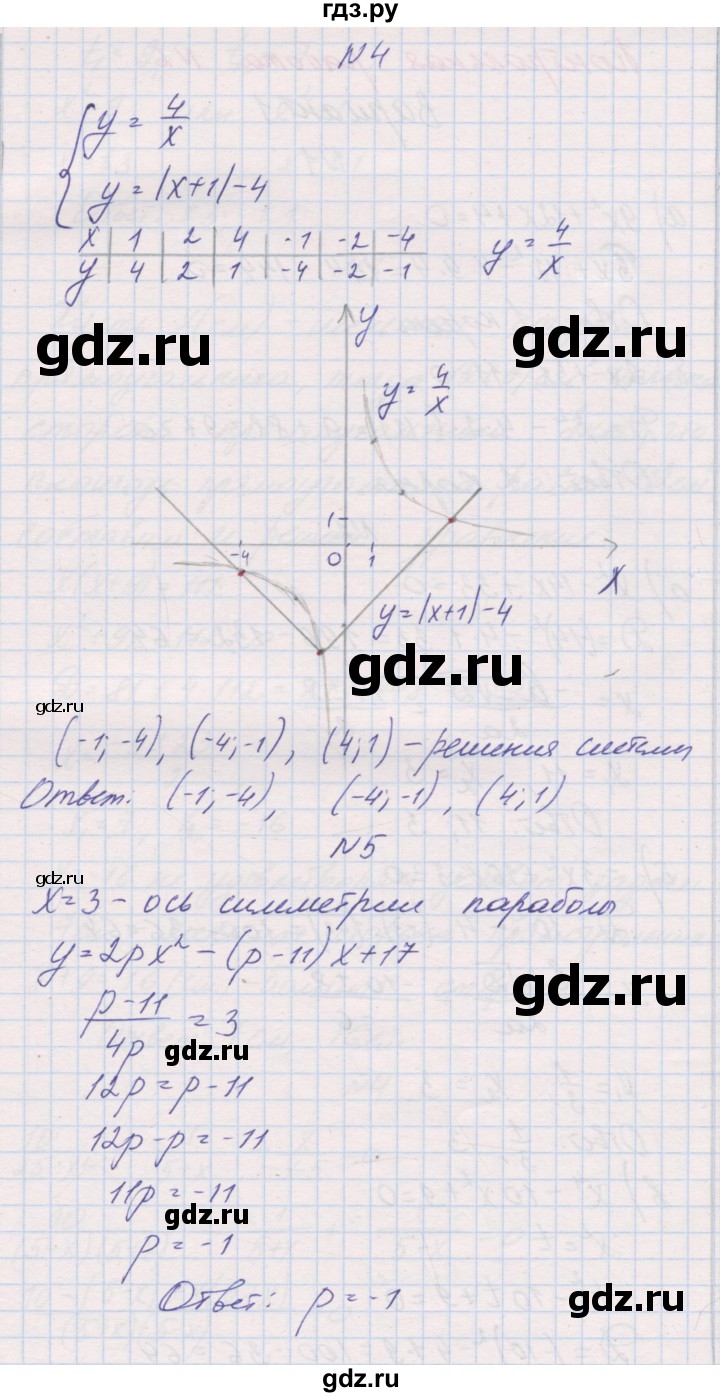 гдз.ру
N4
y = 4/x
y = |x+1|-4
x | 1 | 2 | 4 | -1 | -2 | -4
y | 4 | 2 | 1 | -4 | -2 | -1
y = 4/x
gdz.ru gdz.ru
y
y = 4/x
1
-4 0 1
x
y = |x+1|-4
gdz.ru
gdz.ru
(-1; -4), (-4; -1), (4; 1) - решения системы
Ответ: (-1; -4), (-4; -1), (4; 1)
N5
gdz.ru
x=3 - ось симметрии параболы
y = 2px² - (p-11)x+17
gdz.ru
p-11/4p = 3
gdz.ru
12p = p-11
12p-p = -11
11p = -11
gdz.ru
p = -1
Ответ: p = -1
gdz.ru